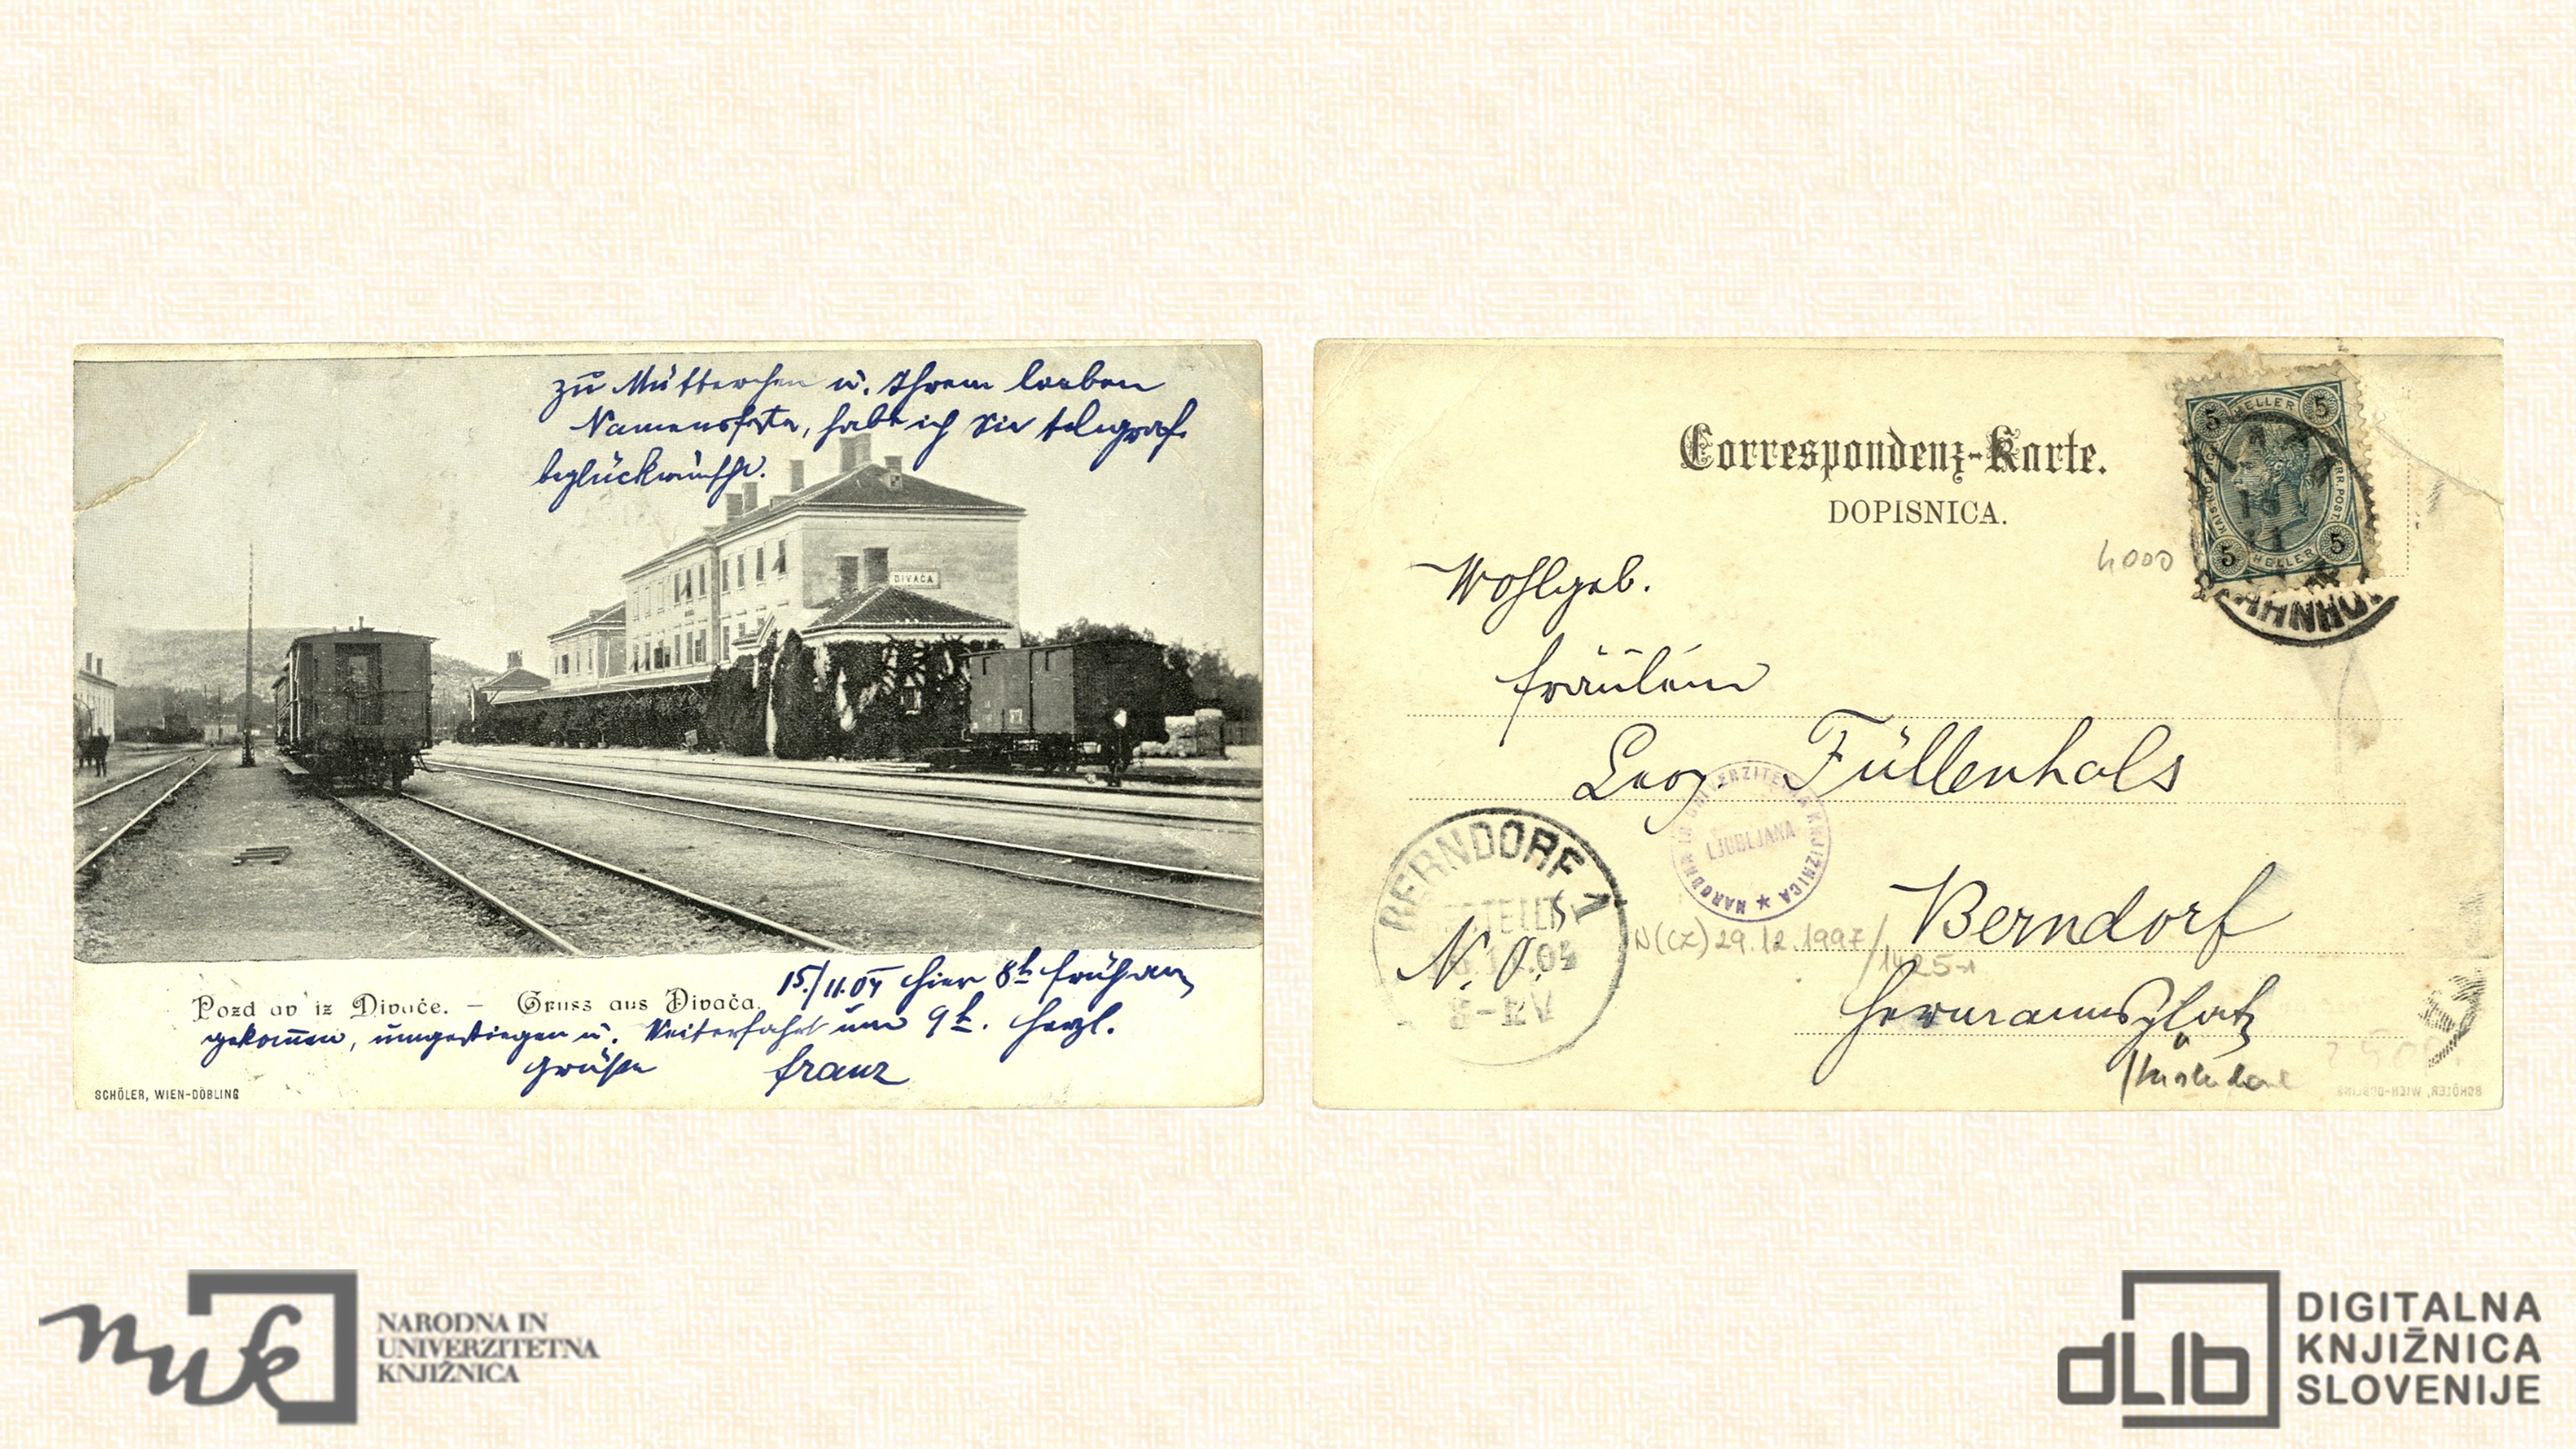 zu Mütterchen u. Ihrem lieben
Namensfeste, habe ich Sie telegraf.
beglückwünscht.
DIVAČA
Pozd av iz Divače. — Gruss aus Divača.
15./11.05 hier 8h früh an
gekom̅en, umgestiegen u. Weiterfahrt um 9h. Herzl.
Grüße Franz
SCHÖLER, WIEN-DÖBLING
Correspondenz-Karte.
DOPISNICA.
5 HELLER 5
5 HELLER 5
4000
Wohlgeb.
Fräulein
Leop. Füllenhals
NARODNA IN UNIVERZITETNA KNJIŽNICA ★
LJUBLJANA
BERNDORF 1
N(CZ) 29.12.1997/
Berndorf
N. Ö.
Hermannsplatz
SCHÖLER, WIEN-DÖBLING
nuk
NARODNA IN
UNIVERZITETNA
KNJIŽNICA
dLib
DIGITALNA
KNJIŽNICA
SLOVENIJE